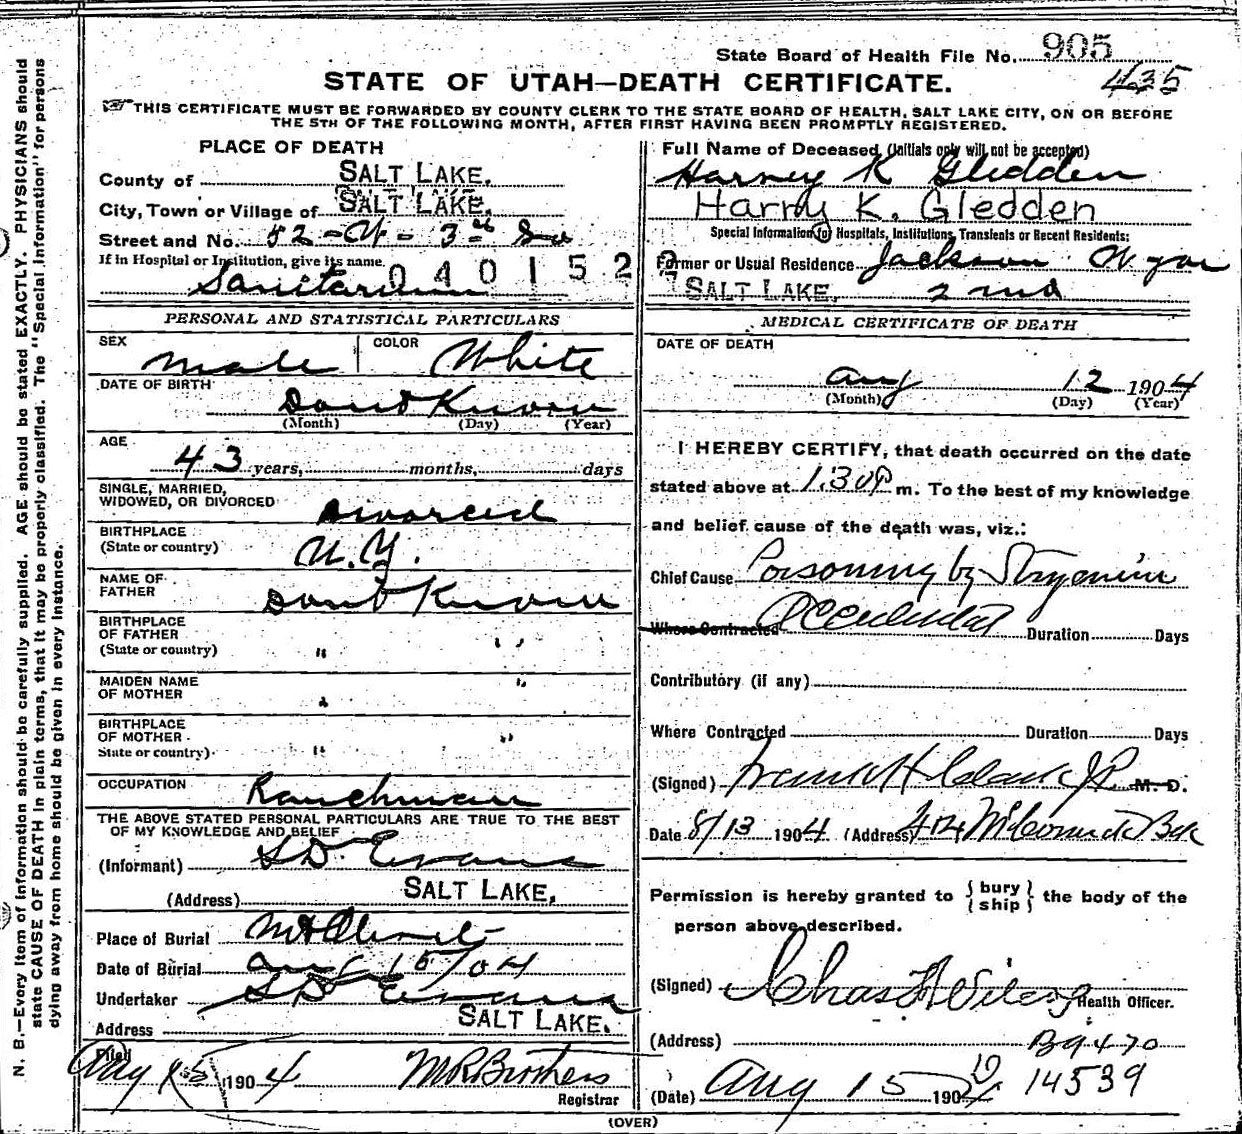 State Board of Health File No. 905
435
STATE OF UTAH—DEATH CERTIFICATE.
THIS CERTIFICATE MUST BE FORWARDED BY COUNTY CLERK TO THE STATE BOARD OF HEALTH, SALT LAKE CITY, ON OR BEFORE
THE 5TH OF THE FOLLOWING MONTH, AFTER FIRST HAVING BEEN PROMPTLY REGISTERED.
PLACE OF DEATH
County of SALT LAKE.
City, Town or Village of SALT LAKE.
Street and No. 52 - W - 3rd So
If in Hospital or Institution, give its name. 0 4 0 1 5 2
Sanitarium
PERSONAL AND STATISTICAL PARTICULARS
SEX male COLOR White
DATE OF BIRTH Dont Know
(Month) (Day) (Year)
AGE 43 years, months, days
SINGLE, MARRIED,
WIDOWED, OR DIVORCED Divorced
BIRTHPLACE
(State or country) N.Y.
NAME OF
FATHER Dont Know
BIRTHPLACE
OF FATHER
(State or country) " "
MAIDEN NAME
OF MOTHER " "
BIRTHPLACE
OF MOTHER
State or country) " "
OCCUPATION Ranchman
THE ABOVE STATED PERSONAL PARTICULARS ARE TRUE TO THE BEST
OF MY KNOWLEDGE AND BELIEF
(Informant) S.D. Evans
(Address) SALT LAKE.
Place of Burial Mt Olivet
Date of Burial Aug 15/04
Undertaker S D Evans
Address SALT LAKE.
Filed Aug 15 1904 M R Brothers
Registrar
Full Name of Deceased (Initials only will not be accepted)
Harvey K Gledden
Harry K. Gledden
Special Information for Hospitals, Institutions, Transients or Recent Residents:
Former or Usual Residence Jackson Wyo
SALT LAKE. 2nd
MEDICAL CERTIFICATE OF DEATH
DATE OF DEATH
Aug 12 1904
(Month) (Day) (Year)
I HEREBY CERTIFY, that death occurred on the date
stated above at 1.30 P m. To the best of my knowledge
and belief cause of the death was, viz.:
Chief Cause Poisoning by Strycnine
Where Contracted Accidental Duration Days
Contributory (if any)
Where Contracted Duration Days
(Signed) Frank H Clark J.P. M. D.
Date 8/13 1904 (Address) 414 McCornick
Permission is hereby granted to { bury
ship } the body of the
person above described.
(Signed) Chas Wilcox Health Officer.
(Address) B9470
(Date) Aug 15 1904 14539
(OVER)
N. B.—Every item of information should be carefully supplied. AGE should be stated EXACTLY. PHYSICIANS should
state CAUSE OF DEATH in plain terms, that it may be properly classified. The "Special Information" for persons
dying away from home should be given in every instance.